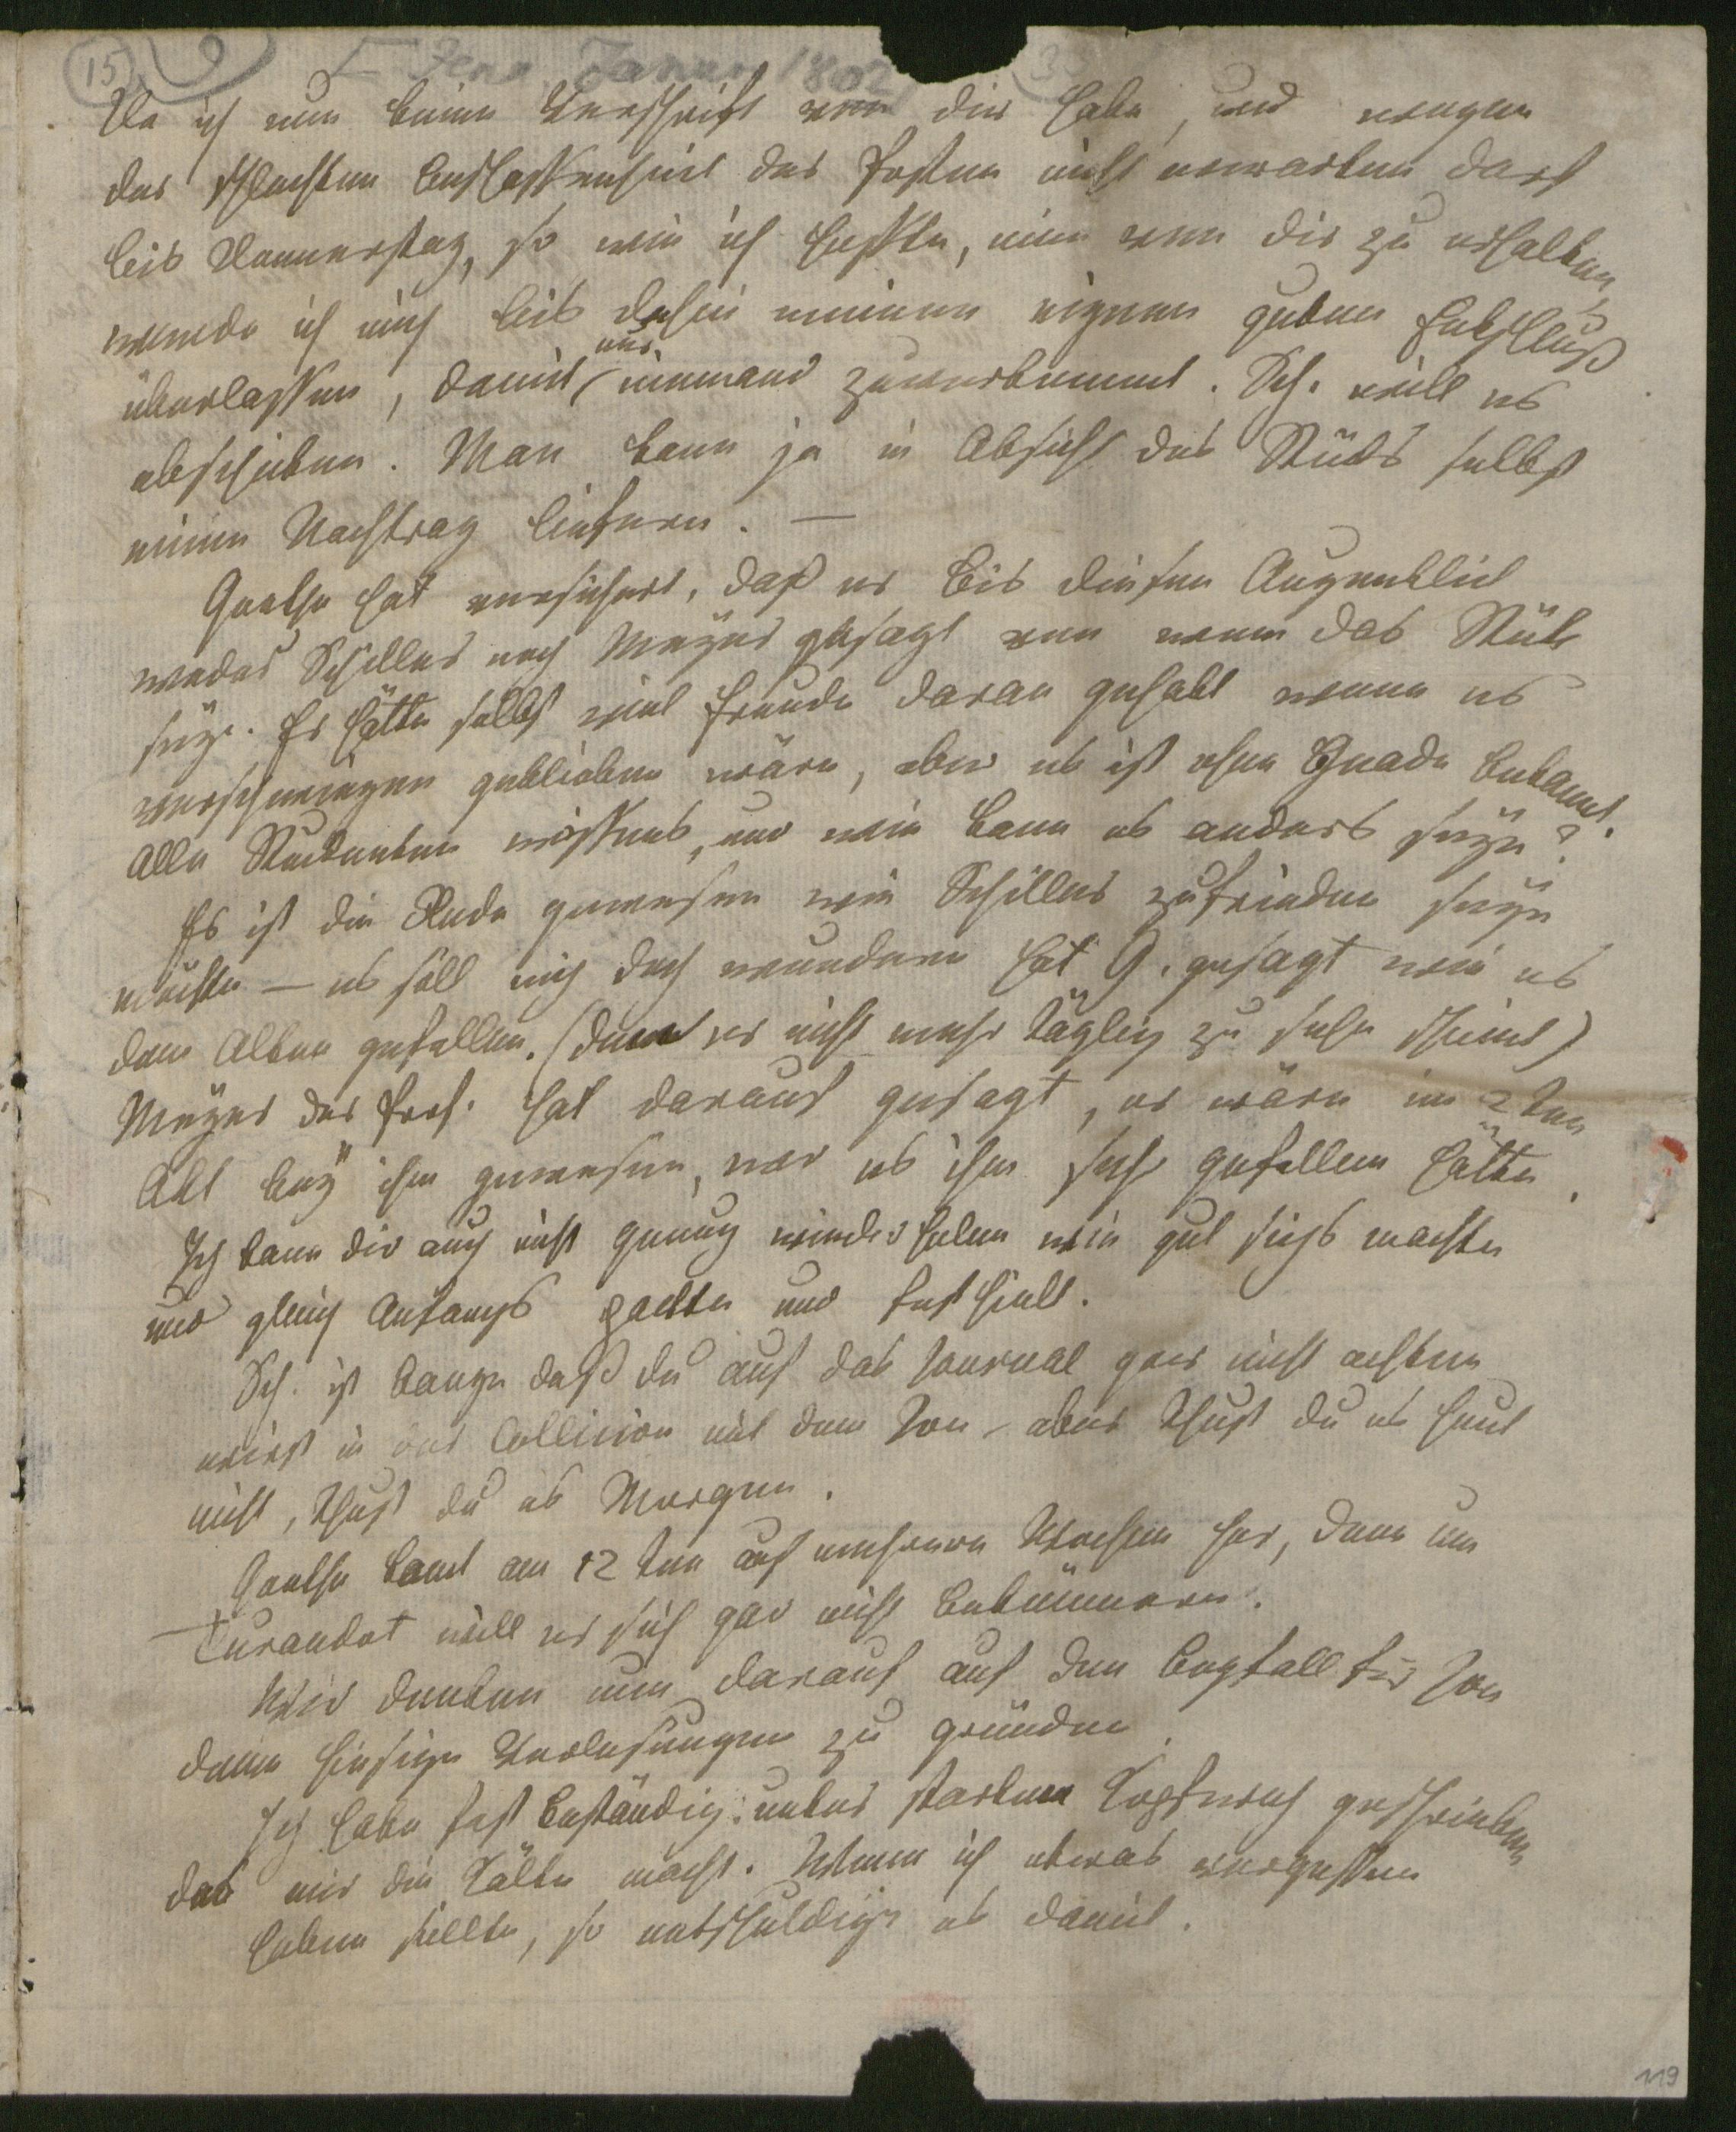 15
[Jena Januar 1802]
Da ich nun keine Vorschrift von dir habe, und wegen
der schlechten Beschaffenheit der Posten nicht erwarten darf
bis Donnerstag, so wie ich hoffte, eine von dir zu erhalten,
werde ich mich bis dahin meinem eignen guten Entschluß
überlassen, damit uns niemand zuvorkommt. Sch. will es
abschicken. Man kann ja in Absicht des Stücks selbst
einen Nachtrag liefern. —
Goethe hat versichert, daß er bis diesen Augenblick
weder Schiller noch Meyer gesagt von wem das Stück
sey. Er hätte selbst viel Freude daran gehabt wenn es
verschwiegen geblieben wäre, aber es ist ohne Gnade bekannt.
Alle Studenten wissens, und wie kann es anders seyn?
Es ist die Rede gewesen wie Schiller zufrieden seyn
möchte — es soll mich doch wundern hat G. gesagt wie es
dem Alten gefallen. (den er nicht mehr täglich zu sehn scheint)
Meyer der Prof. hat darauf gesagt, er wäre im 2ten
Akt bey ihm gewesen, wo es ihm sehr gefallen hätte.
Ich kann dir auch nicht genug wiederholen wie gut sichs machte
und gleich Anfangs packte und festhielt.
Sch. ist bange daß du auf das Journal gar nicht achten
wirst in der Collision mit dem Ion — aber thust du es heut
nicht, thust du es Morgen.
Goethe komt am 12ten auf mehrere Wochen her, denn um
Turandot will er sich gar nicht bekümmern.
Wir denken nun darauf auf den Beyfall für Ion
deine hiesige Vorlesungen zu gründen.
Ich habe fast beständig unter starkem Kopfweh geschrieben
das mir die Kälte macht. Wenn ich etwas vergessen
haben sollte, so entschuldige es damit.
119